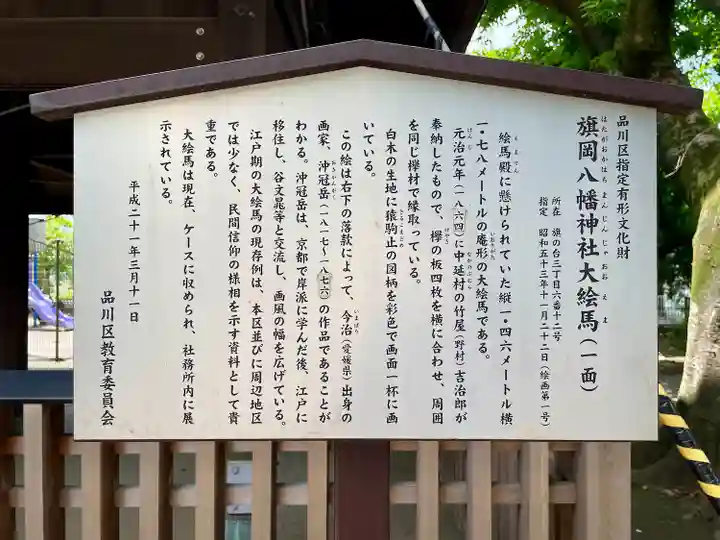 品川区指定有形文化財
旗岡八幡神社大絵馬(一面)
はたがおかはちまんじんじゃおおえま
所在 旗の台三丁目六番十二号
指定 昭和五十三年十一月二十二日(絵画第一号)
絵馬殿に懸けられていた縦一・四六メートル横
一・七八メートルの庵形の大絵馬である。
元治元年(一八六四)に中延村の竹屋(野村)吉治郎が
奉納したもので、欅の板四枚を横に合わせ、周囲
を同じ欅材で縁取っている。
白木の生地に猿駒止の図柄を彩色で画面一杯に画
いている。
この絵は右下の落款によって、今治(愛媛県)出身の
画家、沖冠岳(一八一七〜一八七六)の作品であることが
わかる。沖冠岳は、京都で岸派に学んだ後、江戸に
移住し、谷文晁等と交流し、画風の幅を広げている。
江戸期の大絵馬の現存例は、本区並びに周辺地区
では少なく、民間信仰の様相を示す資料として貴
重である。
大絵馬は現在、ケースに収められ、社務所内に展
示されている。
平成二十一年三月十一日
品川区教育委員会